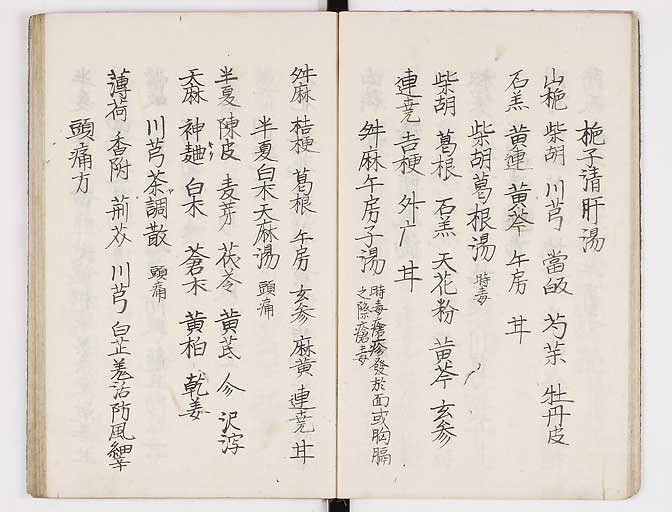 梔子清肝湯
山梔 柴胡 川芎 當皈 芍薬 牡丹皮
石羔 黄連 黄芩 牛房 甘
柴胡葛根湯 時毒
柴胡 葛根 石羔 天花粉 黄芩 玄参
連尭 吉梗 舛广 甘
舛麻牛房子湯 時毒瘡疹發於面或胸膈之際瘡毒
舛麻 桔梗 葛根 牛房 玄参 麻黄 連尭 甘
半夏白朮天麻湯 頭痛
半夏 陳皮 麦芽 茯苓 黄芪 今 沢瀉
天麻 神麯 白朮 蒼朮 黄柏 乾姜
川芎茶調散 頭痛
薄荷 香附 荊芥 川芎 白芷 羗活 防風 細辛
頭痛方